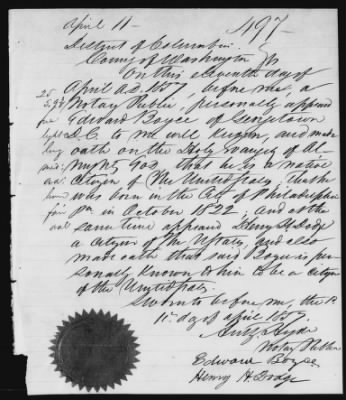 April 11 - 497 -
District of Columbia
County of Washington
On this eleventh day of
April A.D. 1857, before me, a
Notary Public, personally appeared
Edward Boyce of Georgetown
D.C. to me well known, and made
oath on the Holy Evangely of Al-
mighty God that he is a native
Citizen of the United States, that he
was born in the City of Philadelphia
in October 1822; and at the
same time appeared Henry H. Dodge
a citizen of the UStates, and also
made oath that said Boyce is per-
sonally known to him to be a citizen
of the United States.
Sworn to before me, the
11 day of April 1857.
Anty. Hyde
Notary Public
Edward Boyce
Henry H. Dodge